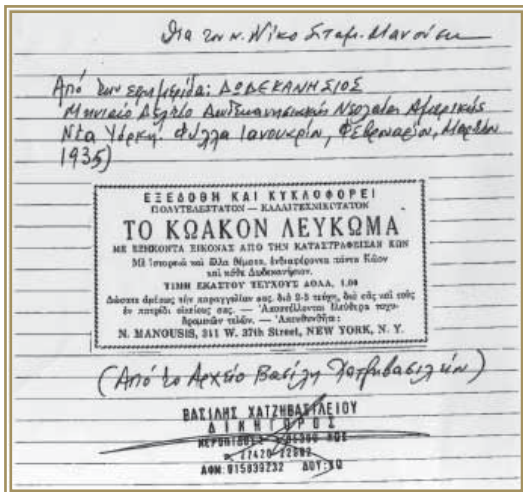 Για τον κ. Νίκο Σταμ. Μανούση
Από την εφημερίδα: ΔΩΔΕΚΑΝΗΣΙΟΣ
Μηνιαίο Δελτίο Δωδεκανησιακής Νεολαίας Αμερικής
Νέα Υόρκη. Φύλλα Ιανουαρίου, Φεβρουαρίου, Μαρτίου
1935)
ΕΞΕΔΟΘΗ ΚΑΙ ΚΥΚΛΟΦΟΡΕΙ
ΠΟΛΥΤΕΛΕΣΤΑΤΟΝ — ΚΑΛΛΙΤΕΧΝΙΚΩΤΑΤΟΝ
ΤΟ ΚΩΑΚΟΝ ΛΕΥΚΩΜΑ
ΜΕ ΕΞΗΚΟΝΤΑ ΕΙΚΟΝΑΣ ΑΠΟ ΤΗΝ ΚΑΤΑΣΤΡΑΦΕΙΣΑΝ ΚΩΝ
Μὲ Ἱστορικὰ καὶ ἄλλα θέματα, ἐνδιαφέροντα πάντα Κῷον
καὶ κάθε Δωδεκανήσιον.
ΤΙΜΗ ΕΚΑΣΤΟΥ ΤΕΥΧΟΥΣ ΔΟΛΛ. 1.00
Δώσατε ἀμέσως τὴν παραγγελίαν σας, διὰ 2-3 τεύχη, διὰ σᾶς καὶ τοὺς
ἐν πατρίδι οἰκείους σας. — Ἀποστέλλονται ἐλεύθερα ταχυ-
δρομικῶν τελῶν. — Ἀπευθυνθῆτε:
N. MANOUSIS, 311 W. 37th Street, NEW YORK, N. Y.
(Από το Αρχείο Βασίλη Χατζηβασιλείου)
ΒΑΣΙΛΗΣ ΧΑΤΖΗΒΑΣΙΛΕΙΟΥ
ΔΙΚΗΓΟΡΟΣ
ΚΩΣ
27420 22892
ΑΦΜ: 015839232 ΔΟΥ: ΚΩ